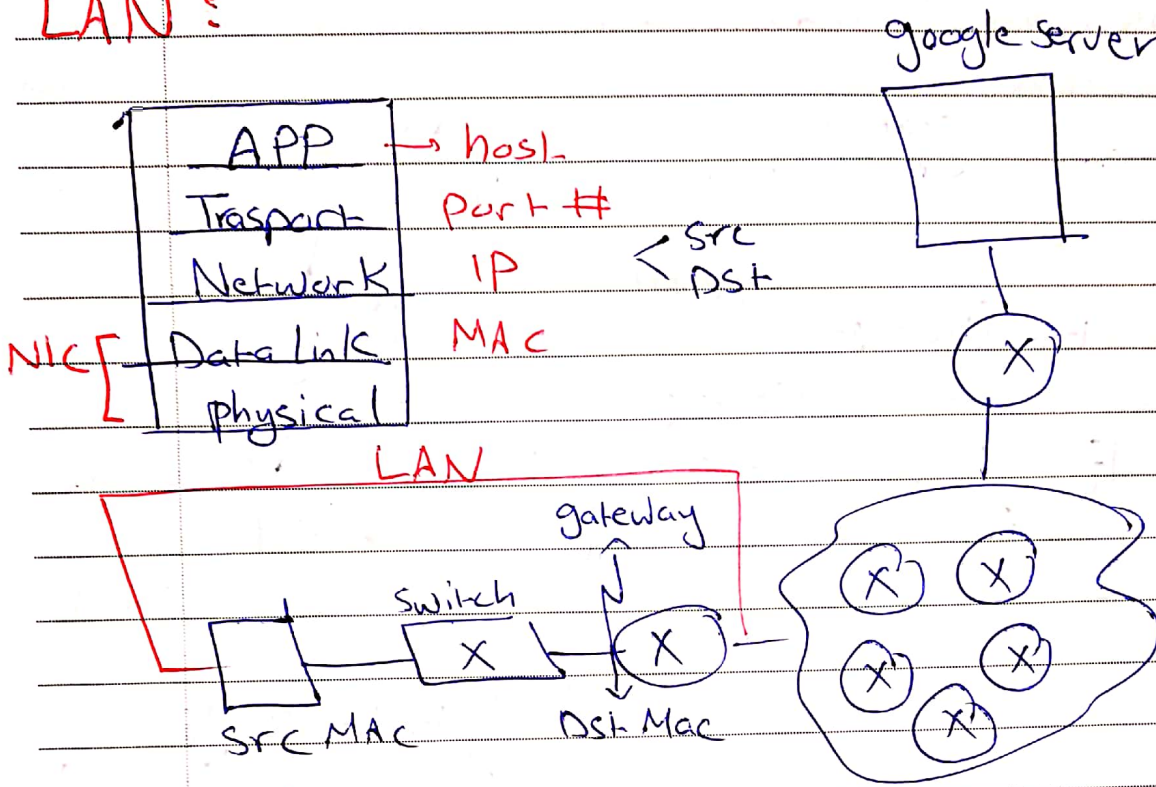 LAN :
google server
APP → host
Trasport Port #
Network IP < Src
Dst
NIC [ Data Link MAC
physical
LAN
gateway
Switch
X
X
X
X
X
X
X
X
Src MAC
Dst Mac